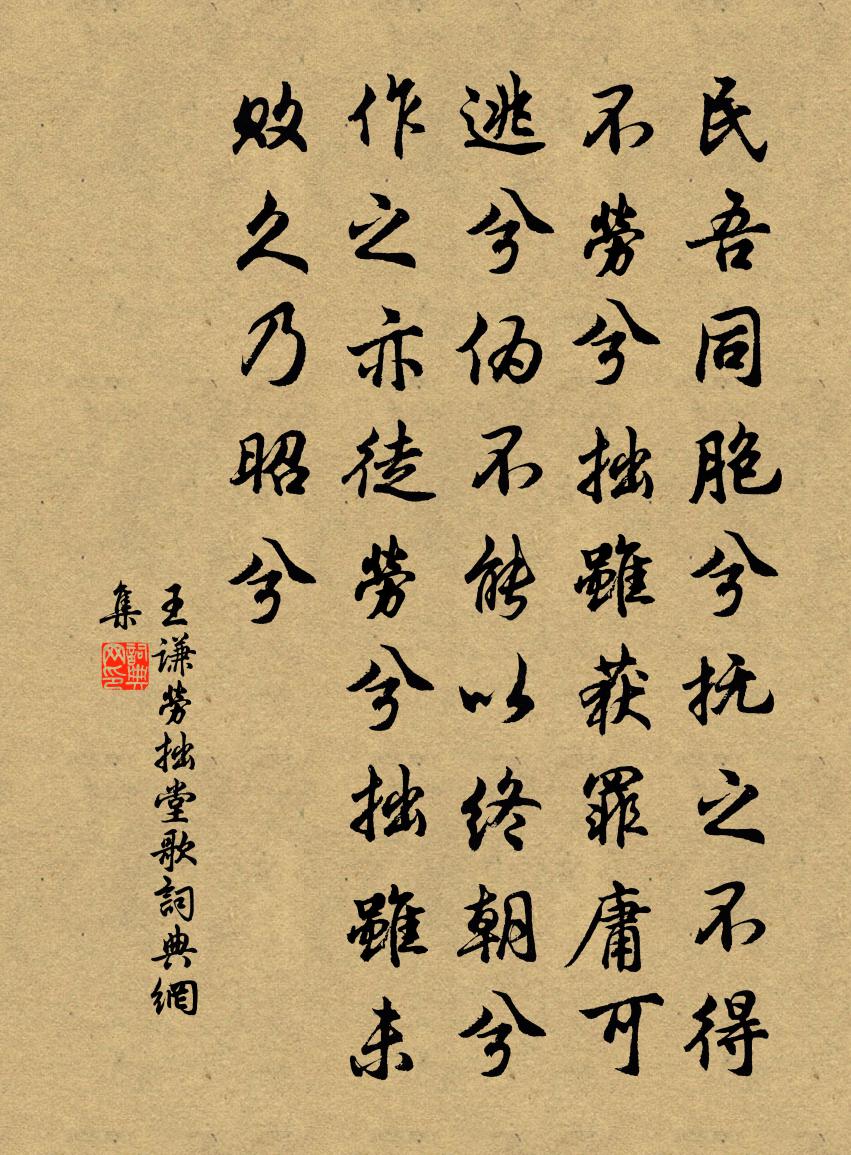 民吾同胞兮抚之不得
不劳兮拙雖获罪庸可
逃兮伪不能以终朝兮
作之亦徒劳兮拙雖未
败久乃昭兮
王谦劳拙堂歌詞典網
集
詞典网印